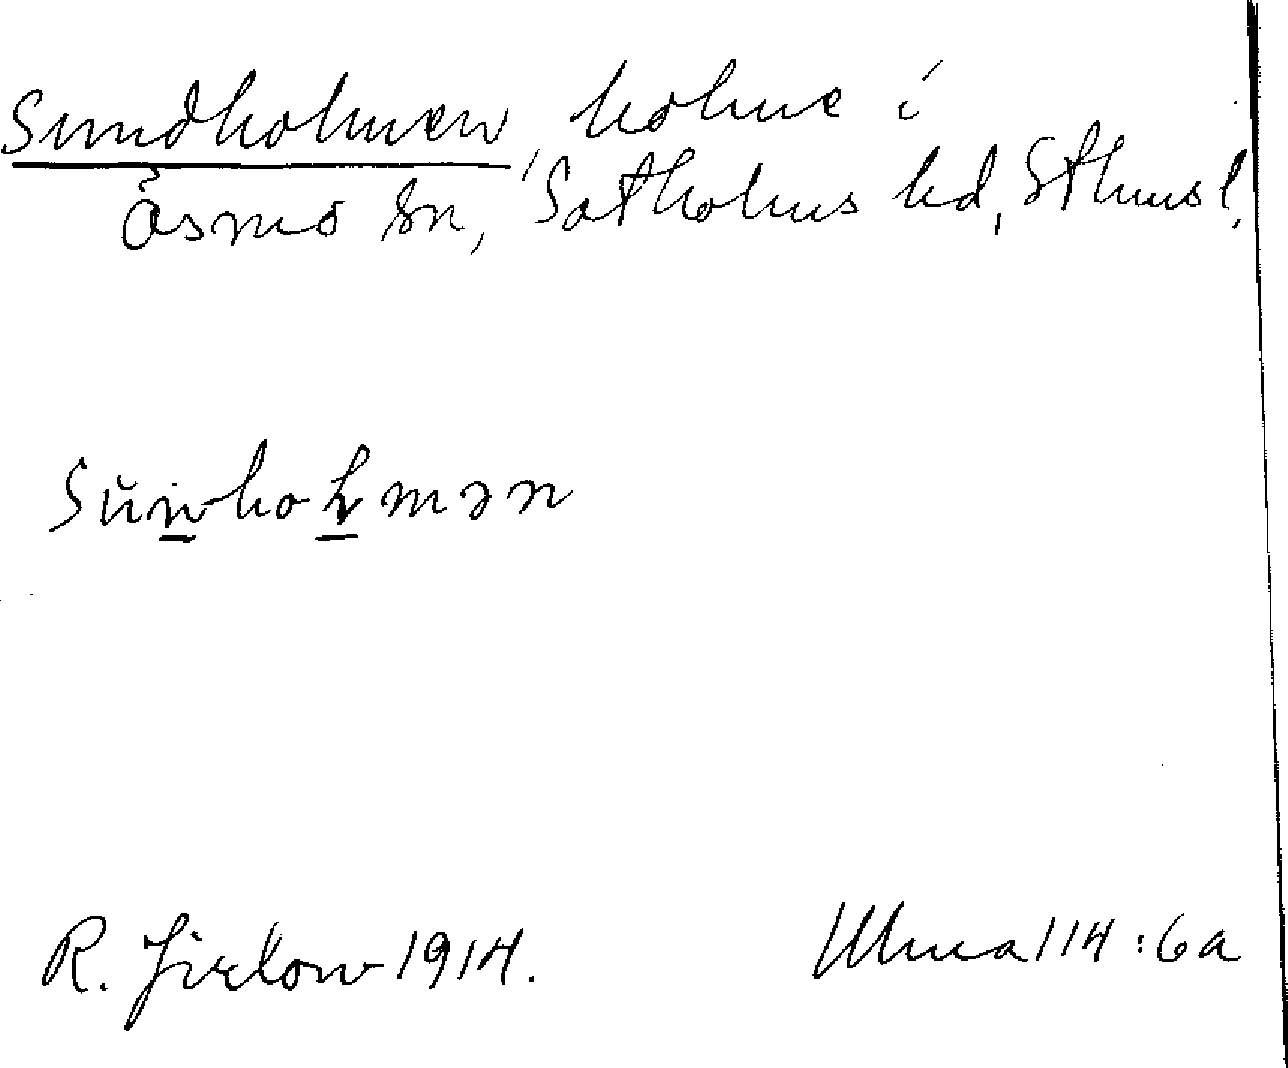 Sundholmen, holme i
Ösmo sn, Sotholms hd, Sthms l.
Sŭnhołmən
R. Jirlow 1914. Ulma 114:6a